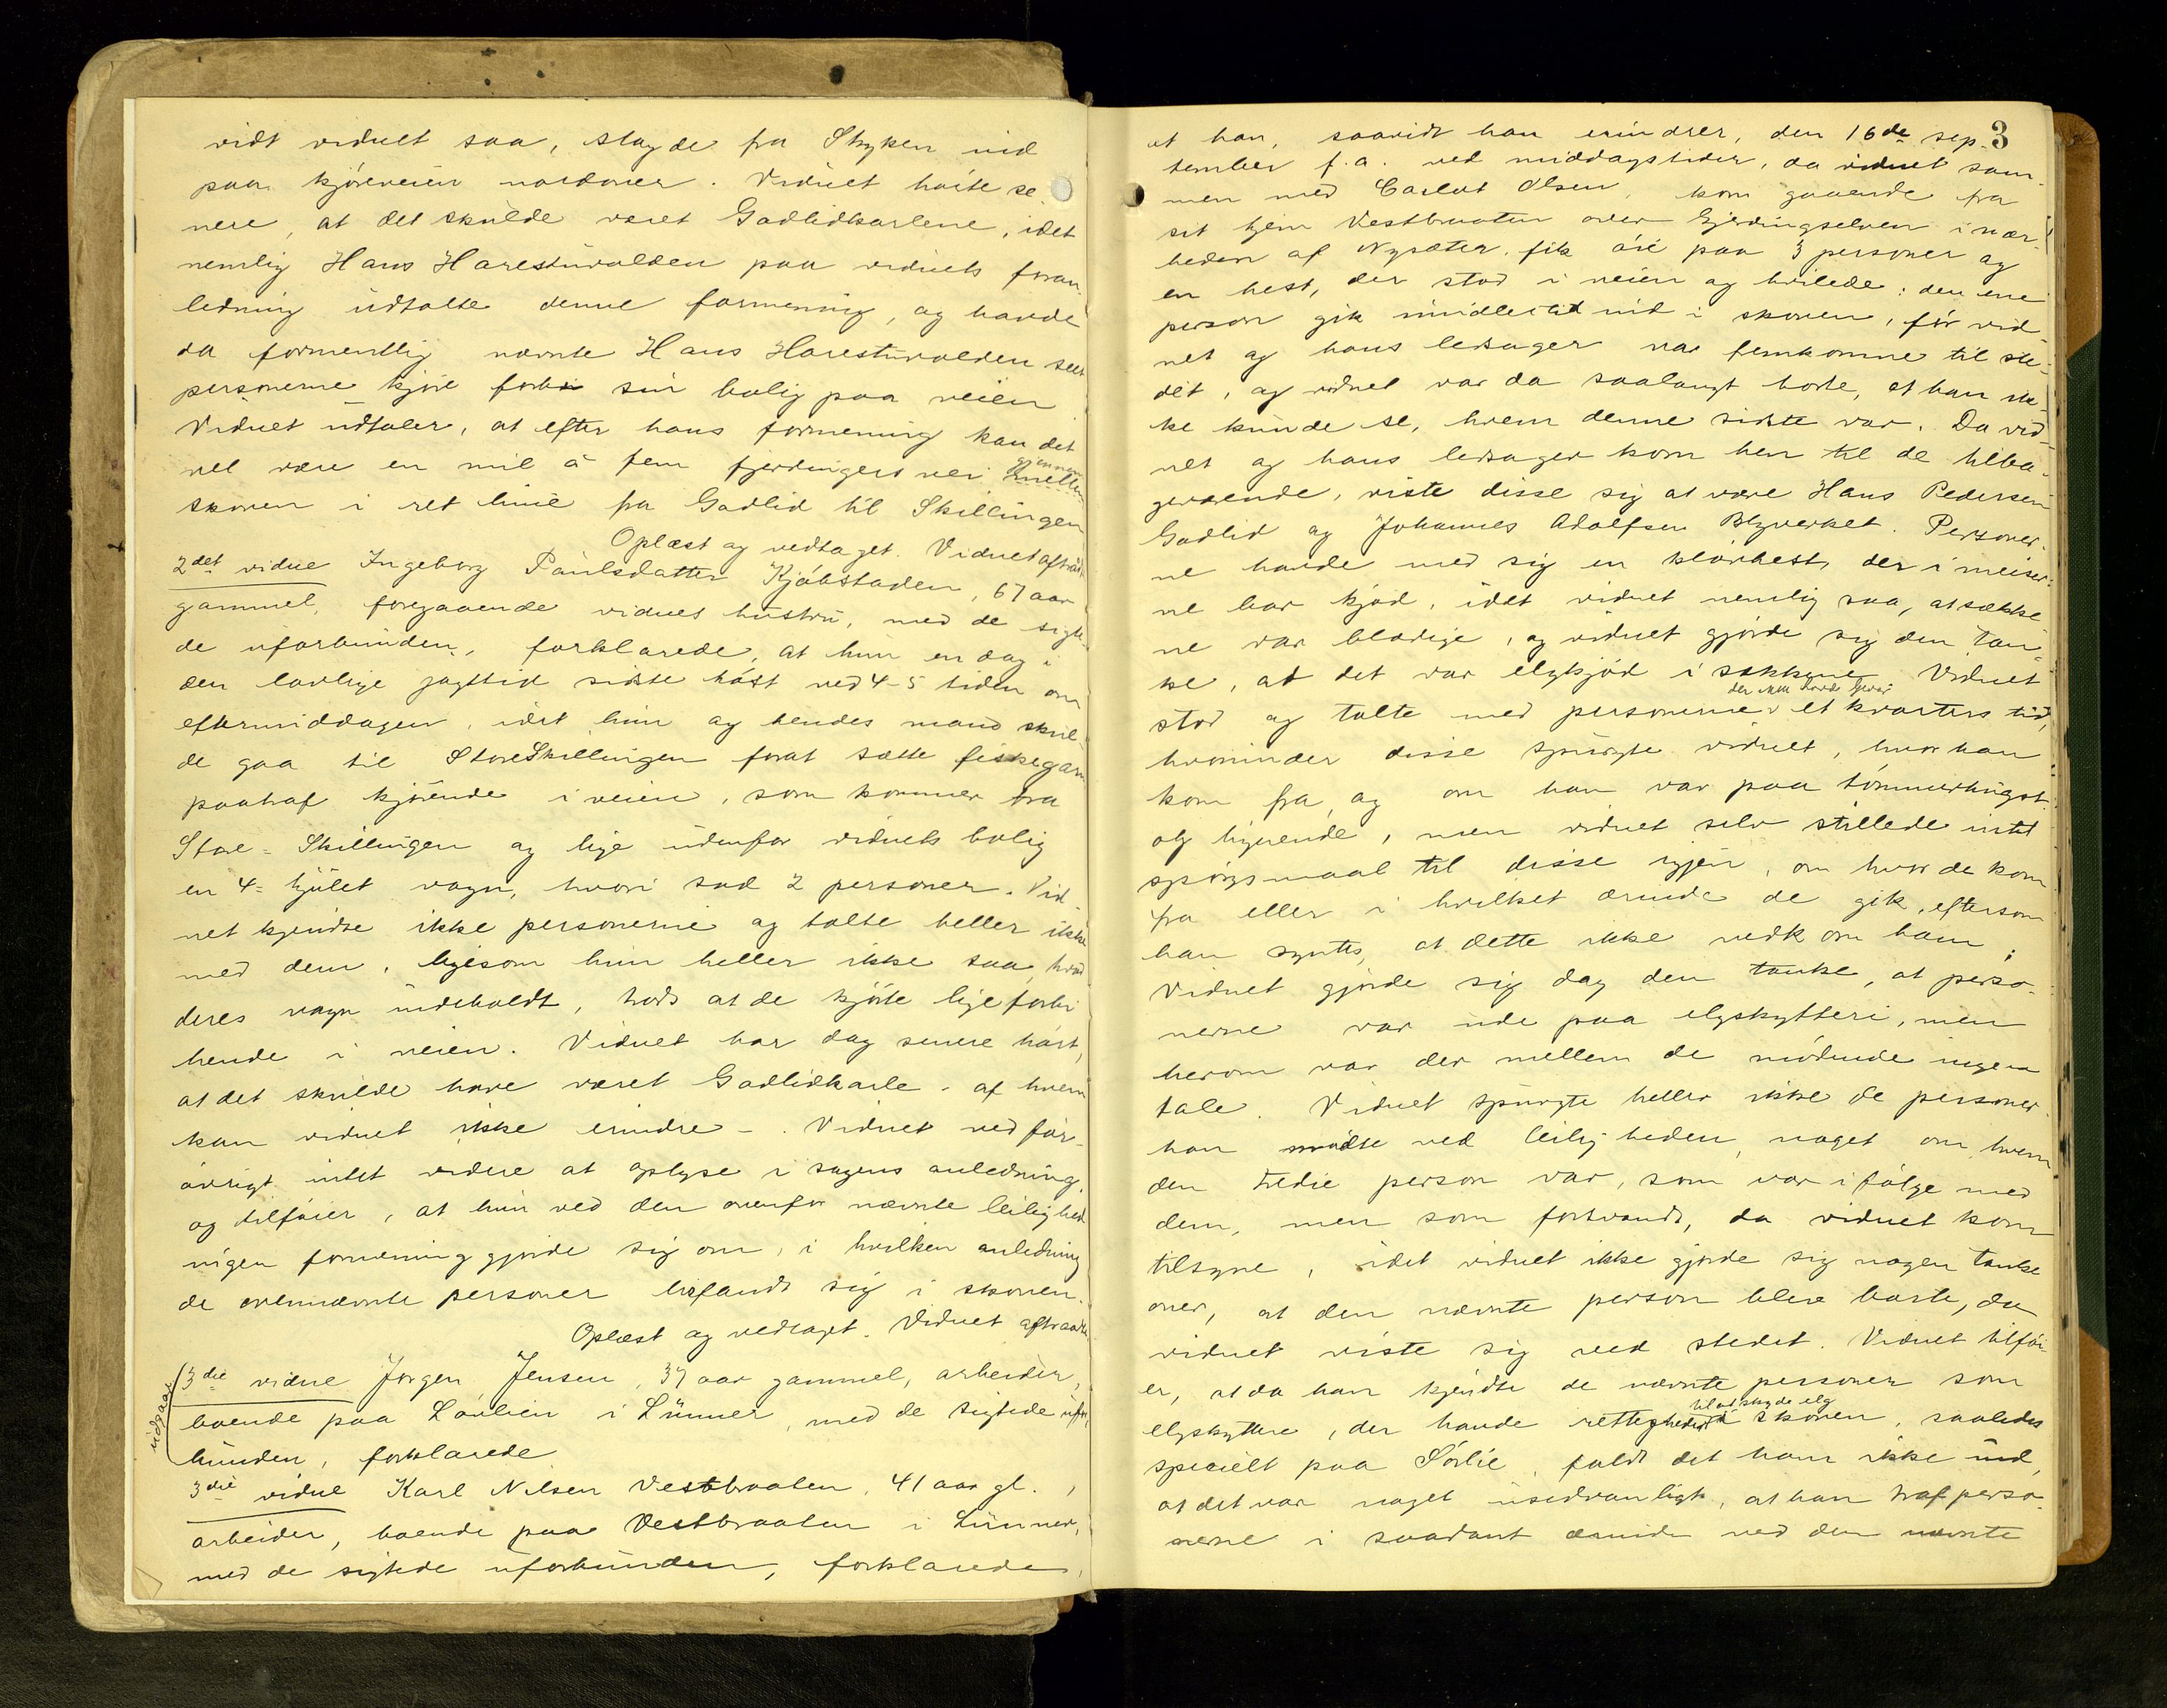 vidt vidnet saa, slagde fra Styken ind
paa kjøreveien nordover. Vidnet hørte se-
nere, at det skulde været Gadlidkarlene, idet
nemlig Hans Haresturolden paa vidnets foran-
ledning udtalte denne formening, og havde
da formentlig nævnte Hans Haresturolden seet
personerne kjøre forbi sin bolig paa veien
Vidnet udtaler, at efter hans formening kan det
vel være en mil à fem fjerdingers vei gjennem
skoven i ret linie fra Gadlid til Skillingen
Oplæst og vedtaget. Vidnet aftraadte
2det vidne Ingeborg Paulsdatter Kjøbstaden, 67 aar
gammel, foregaaende vidnes hustru, med de sigte-
de uforbunden, forklarede, at hun en dag i
den lovlige jagttid sidste høst ved 4-5 tiden om
eftermiddagen, idet hun og hendes mand skul-
de gaa til StoreSkillingen forat sætte fiskegarn
paatraf kjørende i veien, som kommer fra
Store-Skillingen og lige udenfor vidnets bolig
en 4-hjulet vogn, hvori sad 2 personer. Vid-
net kjendte ikke personerne og talte heller ikke
med dem, ligesom hun heller ikke saa, hvad
deres vogn indeholdt, trods at de kjørte lige forbi
hende i veien. Vidnet har dog senere hørt,
at det skulde have været Gadlidkarle - af hvem
kan vidnet ikke erindre -. Vidnet ved for-
øvrigt intet videre at oplyse i sagens anledning,
og tilføier, at hun ved den ovenfor nævnte leilighed
ingen formening gjorde sig om, i hvilken anledning
de ovennævnte personer befandt sig i skoven.
Oplæst og vedtaget. Vidnet aftraadte
3die vidne Jørgen Jensen, 37 aar gammel, arbeider,
boende paa Løvlien i Lunner, med de sigtede ufor-
bunden, forklarede
udgaar
3die vidne Karl Nilsen Vestbraaten, 41 aar gl.,
arbeider, boende paa Vestbraaten i Lunner,
med de sigtede uforbunden, forklarede,
3
at han, saavidt han erindrer, den 16de sep-
tember f.a. ved middagstider, da vidnet sam-
men med Carlot Olsen, kom gaaende fra
sit hjem Vestbraaten over Gjerdingselven i nær-
heden af Nysæter, fik øie paa 3 personer og
en hest, der stod i veien og hvilede; den ene
person gik imidlertid ind i skoven, før vid
net og hans ledsager var fremkomne til ste-
det, og vidnet var da saalangt borte, at han ik-
ke kunde se, hvem denne sidste var. Da vid-
net og hans ledsager kom hen til de tilba-
geværende, viste disse sig at være Hans Pedersen
Gadlid og Johannes Adolfsen Blyverket. Personer-
ne havde med sig en kløvhest, der i meiser-
ne bar kjød, idet vidnet nemlig saa, at sække-
ne var blodige, og vidnet gjorde sig den tan-
ke, at det var elgkjød i sækkene. Vidnet
stod og talte med personerne, der ikke havde gevær et kvarters tid,
hvorunder disse spurgte vidnet, hvor han
kom fra, og om han var paa tømmerhugst
og lignende, men vidnet selv stillede intet
spørgsmaal til disse igjen, om hvor de kom
fra eller i hvilket ærinde de gik, eftersom
han syntes, at dette ikke vedkom ham;
Vidnet gjorde sig dog den tanke, at perso-
nerne var ude paa elgskytteri, men
herom var der mellem de mødende ingen
tale. Vidnet spurgte heller ikke de personer
han mødte ved leiligheden noget om, hvem
den tredie person var, som var i følge med
dem, men som forsvandt, da vidnet kom
tilsyne, idet vidnet ikke gjorde sig nogen tanke
over, at den nævnte person blev borte, da
vidnet viste sig ved stedet. Vidnet tilføi-
er, at da han kjendte de nævnte personer som
elgskyttere, der havde rettigheder til at skyde elg i skoven, saaledes
specielt paa Sørlie, faldt det ham ikke ind,
at det var noget usedvanligt, at han traf perso-
nerne i saadant ærinde ved den nævnte